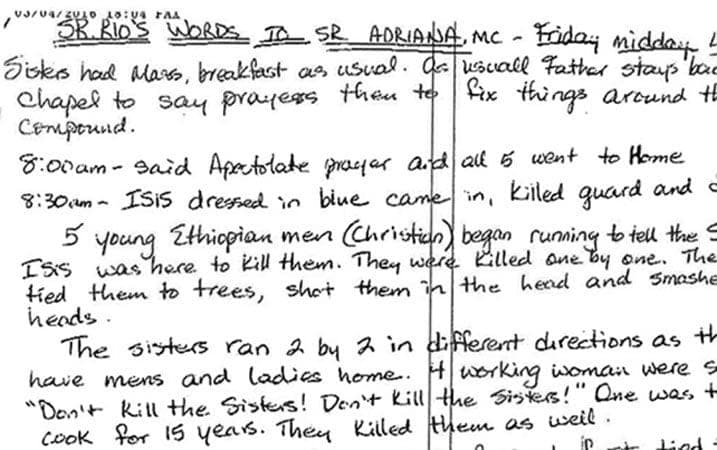 03/04/2016 18:04 FAX
SR. RIO'S WORDS TO SR ADRIANA, MC - Friday midday
Sisters had Mass, breakfast as usual. As usuall Father stays
Chapel to say prayers then to fix things around
Compound.
8:00am - said Apostolate prayer and all 5 went to Home
8:30am - ISIS dressed in blue came in, killed guard and
5 young Ethiopian men (Christian) began running to tell the
ISIS was here to kill them. They were killed one by one. The
tied them to trees, shot them in the head and smashe
heads.
The sisters ran 2 by 2 in different directions as th
have mens and ladies home. 4 working woman were s
"Don't kill the Sisters! Don't kill the sisters!" One was t
cook for 15 years. They killed them as well.